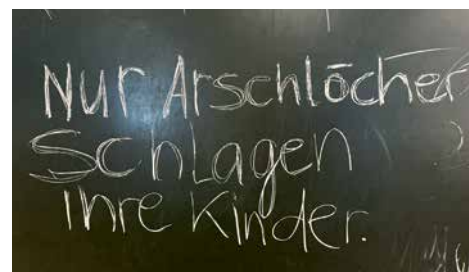 Nur Arschlöcher
Schlagen
ihre Kinder.